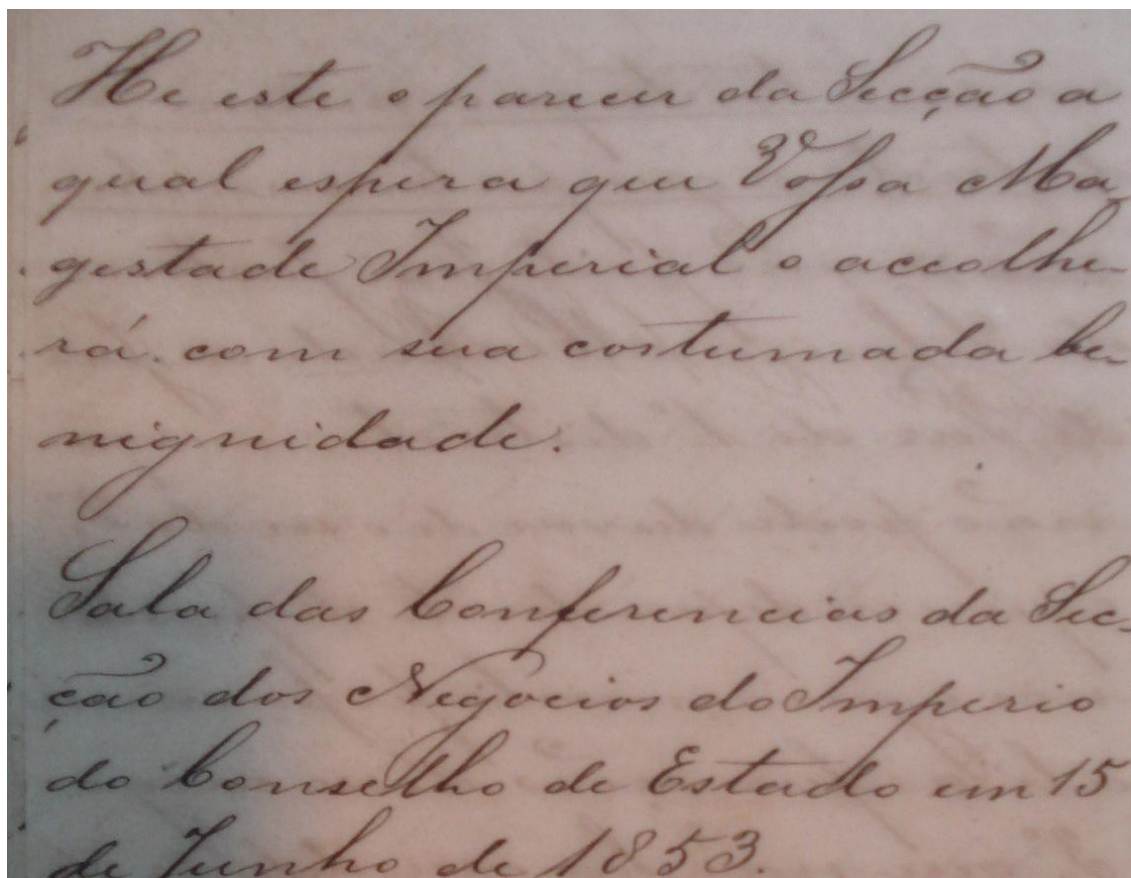 He este o parecer da Secção a
qual espera que Vossa Ma-
gestade Imperial o accolhe-
rá com sua costumada be-
nignidade.
Sala das Conferencias da Sec-
ção dos Negocios do Imperio
do Conselho de Estado em 15
de Junho de 1853.